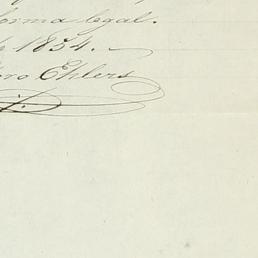 forma legal.
1854.
Ehlers